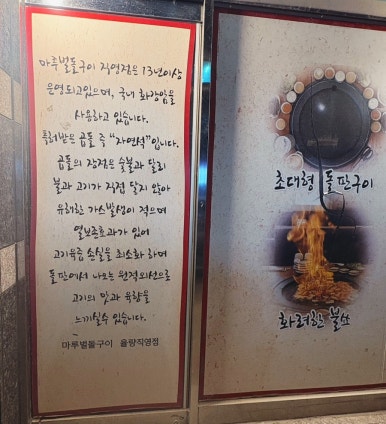 마루벌돌구이 직영점은 13년이상
운영되고있으며, 국내 화강암을
사용하고 있습니다.
특허받은 곱돌 즉 "자연석"입니다.
곱돌의 장점은 숯불과 달리
불과 고기가 직접 닿지 않아
유해한 가스발생이 적으며
열보존효과가 있어
고기육즙 손실을 최소화 하며
돌판에서 나오는 원적외선으로
고기의 맛과 육향을
느끼실수 있습니다.
마루벌돌구이 율량직영점
초대형 돌판구이
화려한 불쇼